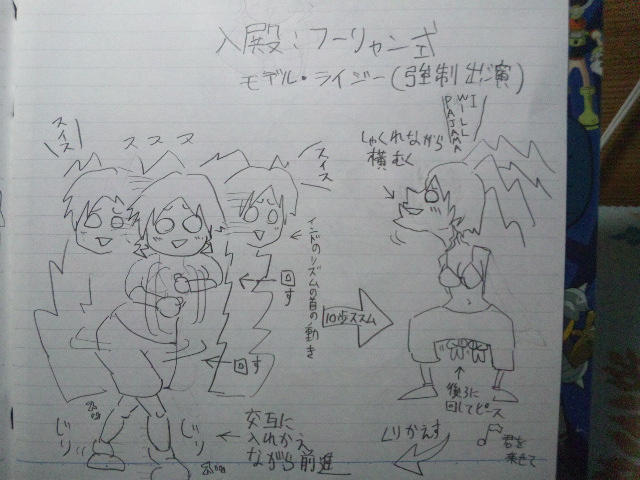 入殿:フーリャン式
モデル・ライジー(強制出演)
I
WILL
PAJAMA
しゃくれながら
横むく
スイス
ススス
スイス
インドのリズムの首の動き
回す
10歩ススム
回す
後ろに
回してピース
じり
じり
交互に
入れかえ
ながら前進
くりかえす
君を
乗せて